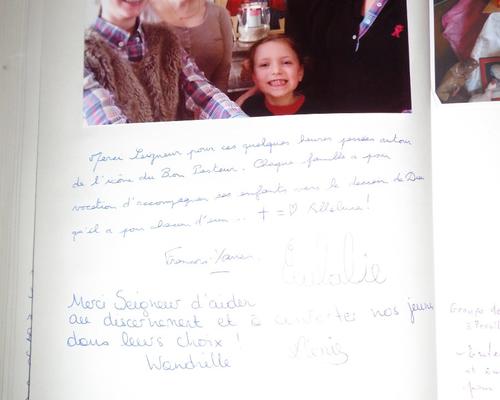 Merci Seigneur pour ces quelques heures passées autour
de l'icône du Bon Pasteur. Chaque famille a pour
vocation d'accompagner ses enfants vers le dessein de Dieu
qu'il a pour chacun d'eux .. † = ♡ Alleluia!
Eulalie
Merci Seigneur d'aider
au discernement et à nos jeunes
dans leurs choix !
Wandrille
Groupe de